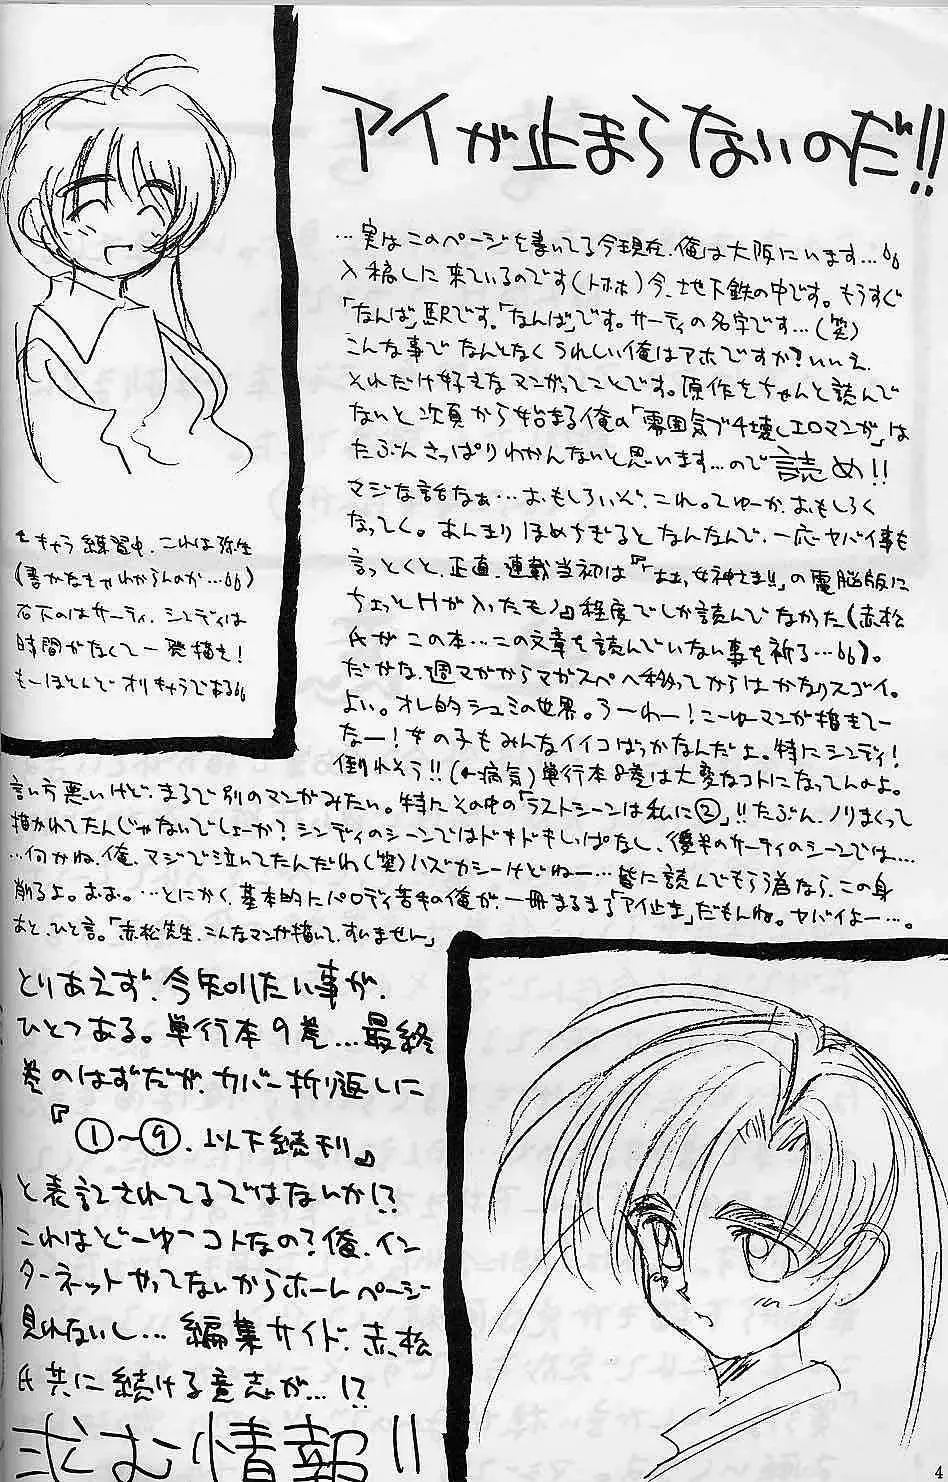 アイが止まらないのだ!!
…実はこのページを書いてる今現在、俺は大阪にいます…66
入稿しに来ているのです(トホホ)今、地下鉄の中です。もうすぐ
「なんば」駅です。「なんば」です。サーティの名字です…(笑)
こんな事でなんとなくうれしい俺はアホですか?いいえ、
それだけ好きなマンガってことです。原作をちゃんと読んで
ないと次頁から始まる俺の「雰囲気ブチ壊しエロマンガ」は
たぶんさっぱりわかんないと思います…ので読め!!
マジな話なぁ…おもしろいぞ、これ。てゆーか、おもしろく
なってく。あんまりほめちぎるとなんなんで、一応ヤバイ事も
言っとくと、正直、連載当初は『ああっ女神さまっ!!』の電脳版に
ちょっとHが入ったモノ』程度でしか読んでなかった(赤松
氏がこの本…この文章を読んでいない事を祈る…66)。
だがな、週マガからマガスペへ移ってからはかなりスゴイ。
よい。オレ的シュミの世界。うーわー!こーゆーマンガ描きてー
なー!女の子もみんなイイコばっかなんだよ。特にシンディ!
倒れそう!!(←病気)単行本8巻は大変なコトになってんのよ。
言い方悪いけど、まるで別のマンガみたい。特にその中の「ラストシーンは私に②」!!たぶん、ノリまくって
描かれてたんじゃないでしょーか?シンディのシーンではドキドキしっぱなし、後半のサーティのシーンでは…
…何かね、俺、マジで泣いてたんだわ(笑)ハズカシーけどねー…皆に読んでもらう為なら、この身
削るよ。おお。…とにかく、基本的にパロディ苦手の俺が、一冊まるまる「アイ止ま」だもんね。ヤバイよー…。
あと、ひと言。「赤松先生、こんなマンガ描いて、すいません」
キャラ練習中、これは弥生
(書かなきゃわからんのか…66)
右下のはサーティ、シンディは
時間がなくて一発描き!
もーほとんどオリキャラである66
とりあえず、今知りたい事が、
ひとつある。単行本9巻…最終
巻のはずだが、カバー折り返しに
『①〜⑨、以下続刊』
と表記されてるではないか!?
これはどーゆーコトなの?俺、イン
ターネットやってないからホームページ
見れないし…編集サイド、赤松
氏共に続ける意志が…!?
求む情報!!
4